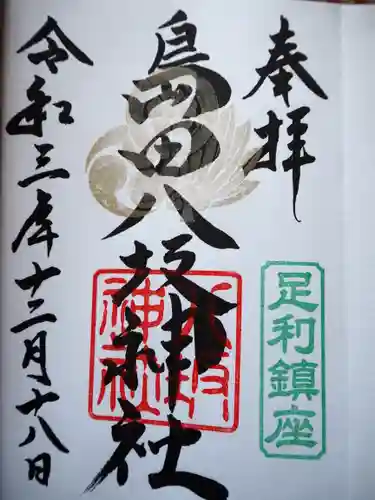 奉拝
足利鎮座
島田八坂神社
八坂
神社
令和三年十二月十八日